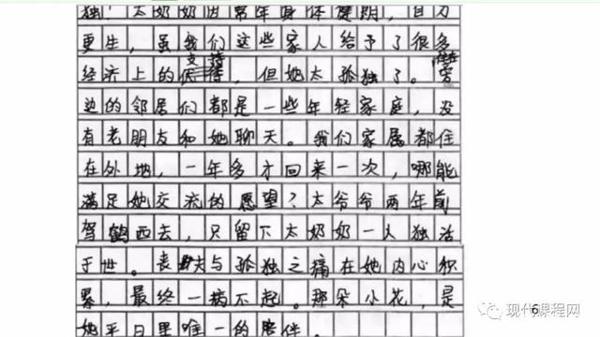 独！太奶奶因常年身体健朗，自力
更生，虽我们这些家人给予了很多
经济上的支持，但她太孤独了。旁
边的邻居们都是一些年轻家庭，没
有老朋友和她聊天。我们家属都住
在外地，一年多才回来一次，哪能
满足她交流的愿望？太爷爷两年前
驾鹤西去，只留下太奶奶一人独活
于世。丧夫与孤独之痛在她内心积
累，最终一病不起。那朵小花，是
她平日里唯一的陪伴。
6
现代课程网